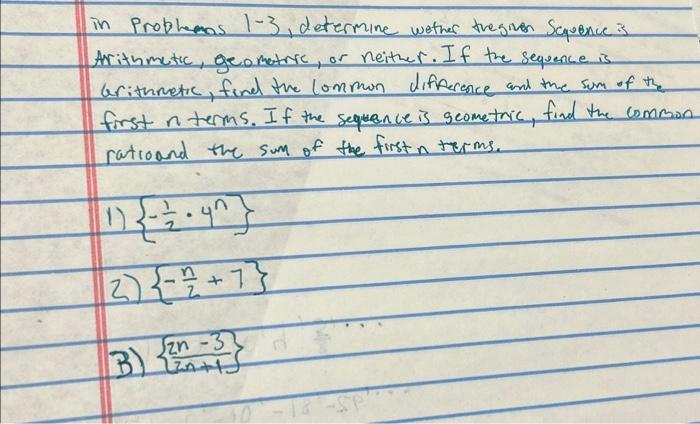 in Problems 1-3, determine wether the given Sequence is
Arithmetic, geometric, or neither. If the sequence is
arithmetic, find the common difference and the sum of the
first n terms. If the sequence is geometric, find the common
ratio and the sum of the first n terms.
1) {-1/2 · 4^n}
2) {-n/2 + 7}
3) {(2n - 3)/(2n + 1)}